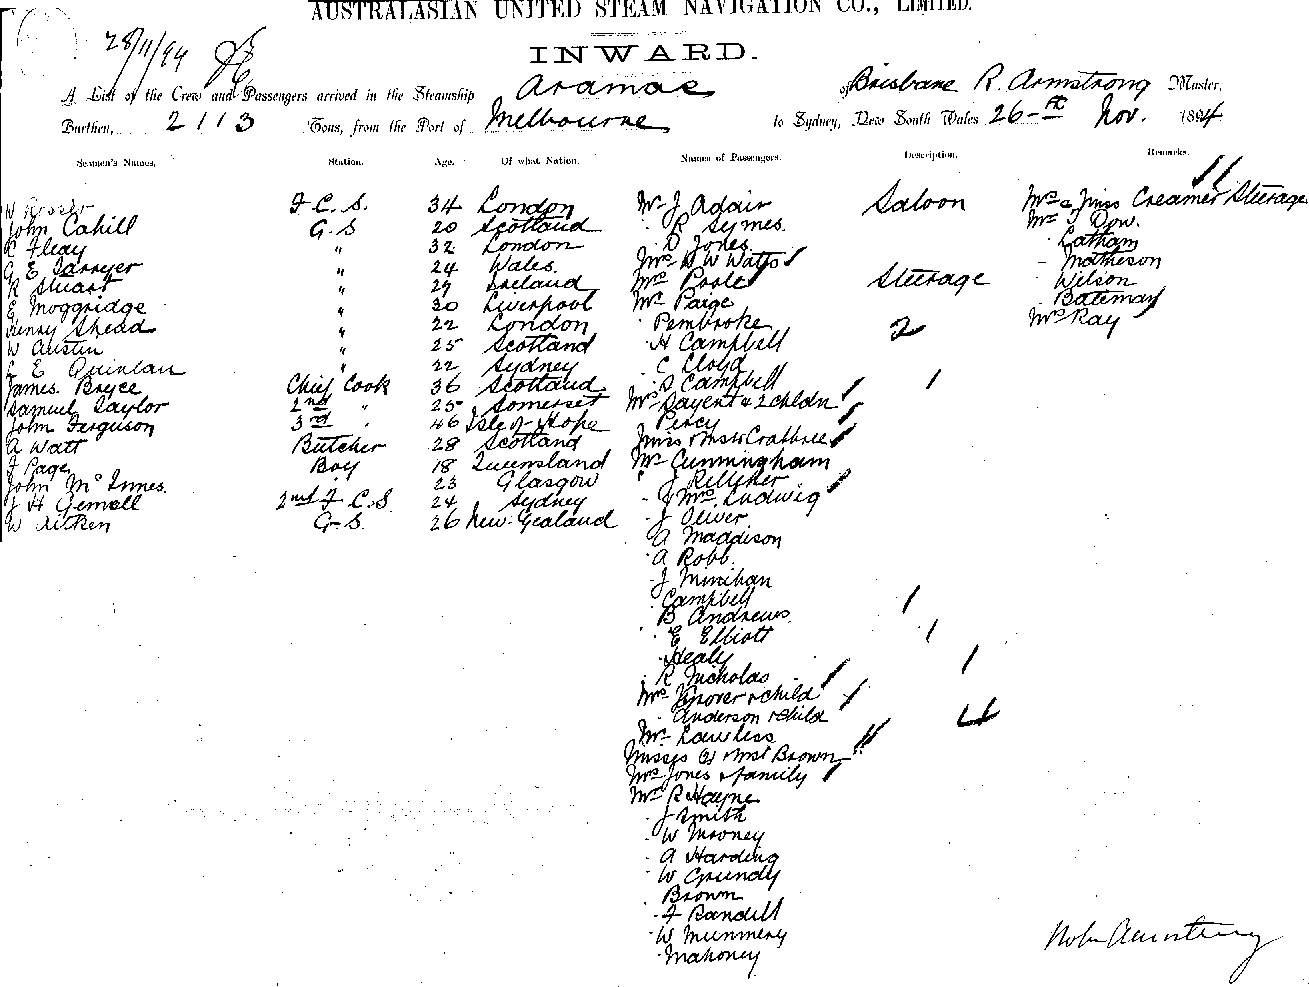 AUSTRALASIAN UNITED STEAM NAVIGATION CO., LIMITED.
INWARD.
28/11/94
A List of the Crew and Passengers arrived in the Steamship Aramac of Brisbane R. Armstrong Master,
Burthen, 2113 Tons, from the Port of Melbourne to Sydney, New South Wales 26th Nov. 1894
Seamen's Names. Station. Age. Of what Nation. Names of Passengers. Description. Remarks.
W F.C.S. 34 London
John Cahill G.S 20 Scotland
R Fleay " 32 London
G E Sawyer " 24 Wales.
R Stuart " 29 Ireland
E Moggridge " 30 Liverpool
Henry Shead " 22 London
W Austin " 25 Scotland
E Quinlan " 22 Sydney
James Bryce Chief Cook 36 Scotland
Samuel Taylor 2nd " 25 Somerset
John Ferguson 3rd " 46 Isle of Hope
A Watt Butcher 28 Scotland
F Page Boy 18 Queensland
John McInnes. 23 Glasgow
J H Gemell 2nd F.C.S. 24 Sydney
W Aitken G.S. 26 New Zealand
Mr J Adair Saloon
" R Symes.
" D Jones
Mrs W Watts
Mr Poole Steerage
Mr Paige
" Pembroke
" H Campbell 2
" C Lloyd
" D Campbell
Mrs Sayent & 2 chldn
" Percy
Miss & Mstr Crabtree
Mr Cunningham
" J Kelliher
" J & Mrs Ludwig
" J Oliver
" A Maddison
" A Robb.
" J Minihan
" Campbell
" B Andrews.
" E Elliott
" Healy
" R Nicholas
Mrs & child
" Anderson & child 4
Mr Lawless
Misses & Mst Brown
Mrs Jones & family
Mr R Hayne
" J Smith
" W Mooney
" A Harding
" W Grundy
" Brown
" F Randell
" W Munmery
" Mahoney
Mrs & Miss Creamer Steerage
Mr J Dow.
" Latham
" Matheson
" Wilson
" Bateman
Mrs Ray
Robt Armstrong